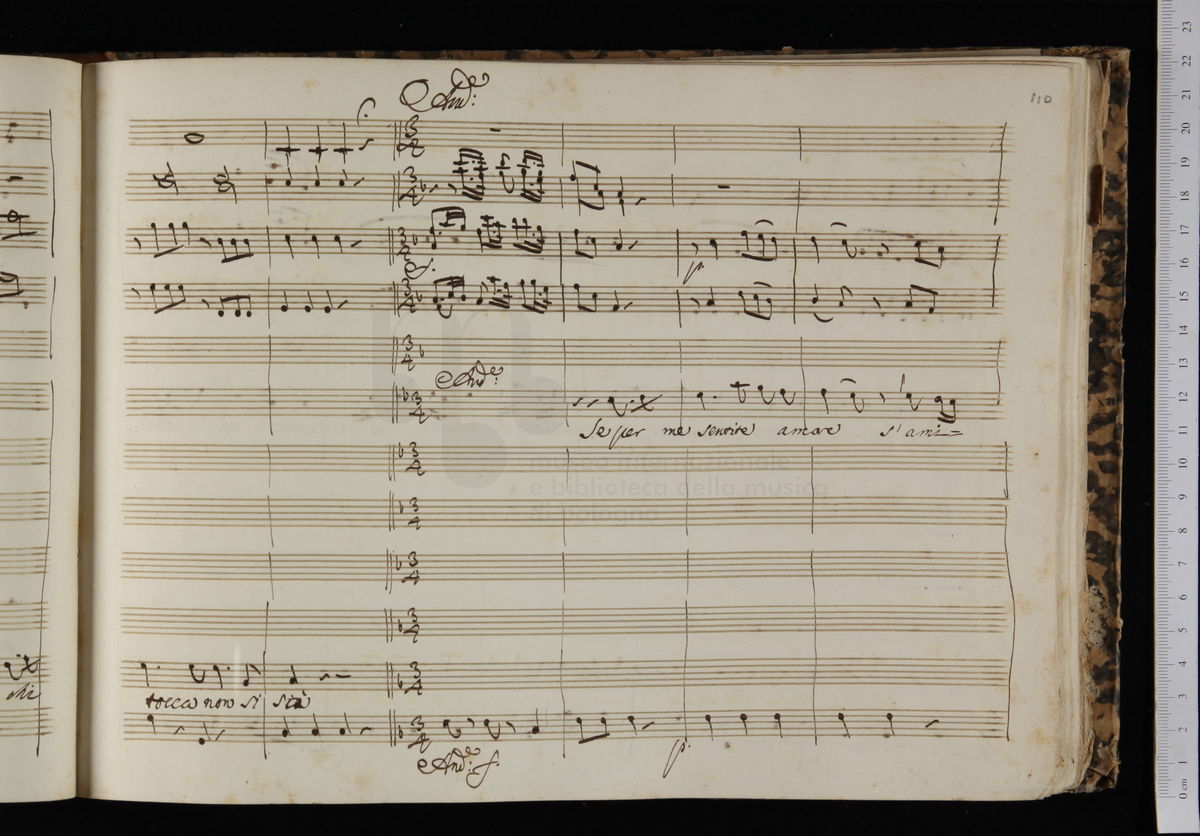 110
And.e
f.
And.e
Se per me sentite amore s'ami=
museo internazionale
e biblioteca della musica
di bologna
tocca non si sà
p.
And.e f.
p.
0 cm 1 2 3 4 5 6 7 8 9 10 11 12 13 14 15 16 17 18 19 20 21 22 23